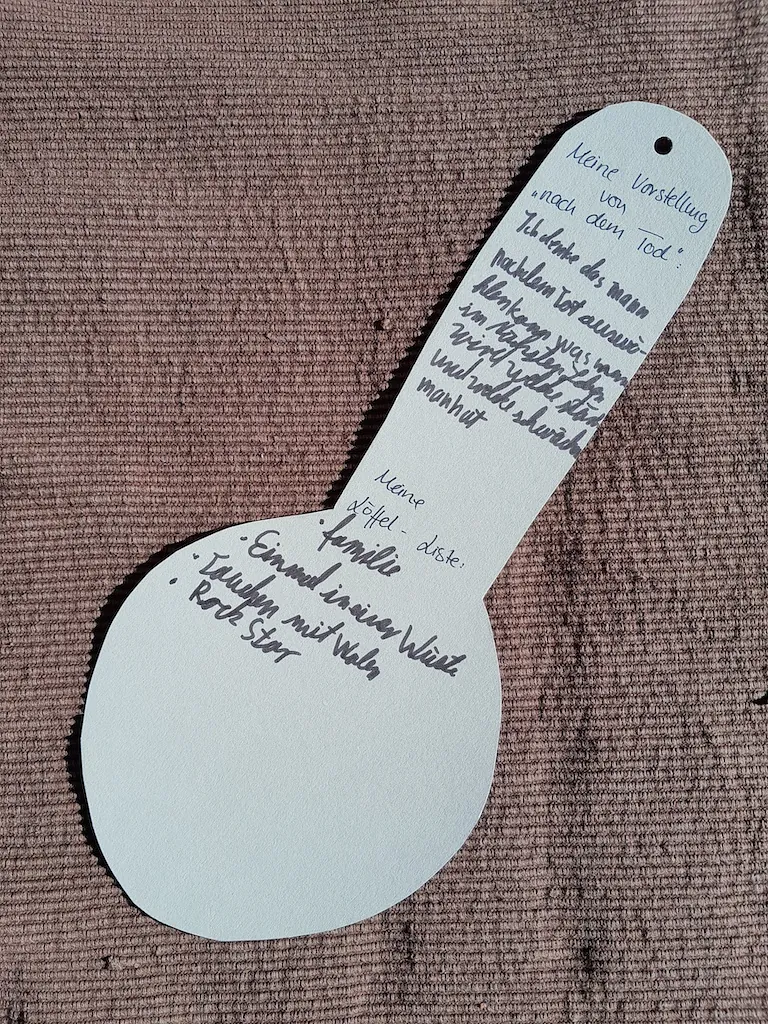 Meine Vorstellung
von
"nach dem Tod":
Ich denke das mann
nachdem Tot auswä-
hlen kann was man
im nähsten Leben
wird welche stärken
und welche schwächen
man hat
Meine
Löffel-Liste:
· familie
· Einmal in einer Wüste
· Tauchen mit Walen
· Rock Star